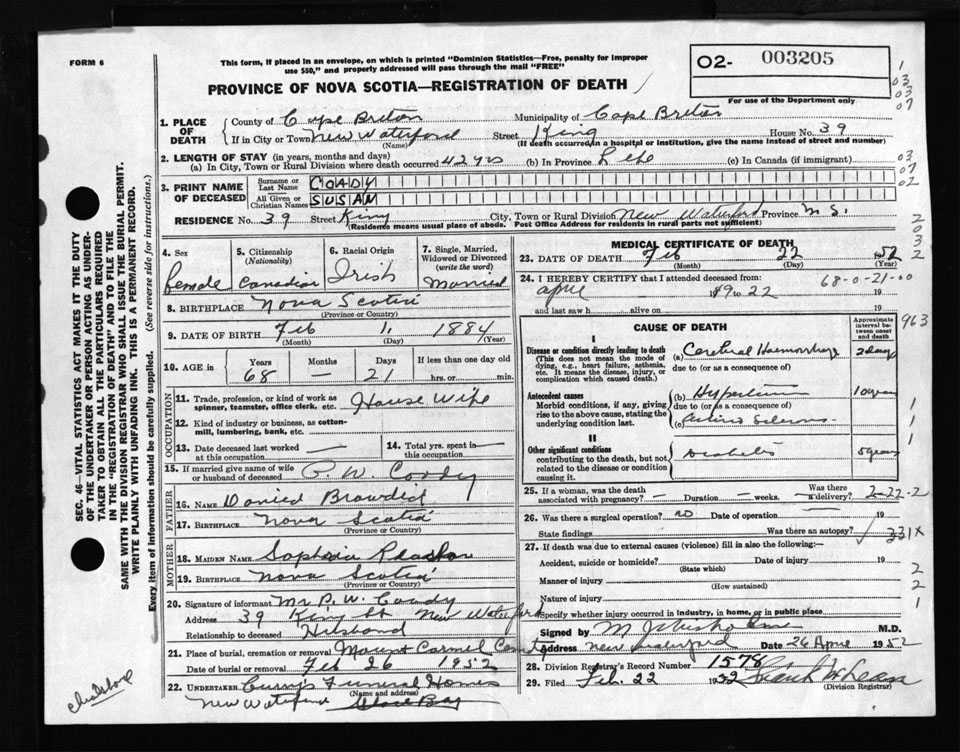 FORM 6
This form, if placed in an envelope, on which is printed "Dominion Statistics—Free, penalty for improper
use $50," and properly addressed will pass through the mail "FREE"
O2- 003205
For use of the Department only
PROVINCE OF NOVA SCOTIA—REGISTRATION OF DEATH
1. PLACE OF DEATH
County of Cape Breton Municipality of Cape Breton
If in City or Town New Waterford (Name) Street King House No. 39
(If death occurred in a hospital or institution, give the name instead of street and number)
2. LENGTH OF STAY (in years, months and days)
(a) In City, Town or Rural Division where death occurred 42 yrs (b) In Province Life (c) In Canada (if immigrant)
3. PRINT NAME OF DECEASED
Surname or Last Name COADY
All Given or Christian Names SUSAN
RESIDENCE No. 39 Street King City, Town or Rural Division New Waterford Province N.S.
(Residence means usual place of abode. Post Office Address for residents in rural parts not sufficient)
4. Sex female
5. Citizenship (Nationality) Canadian
6. Racial Origin Irish
7. Single, Married, Widowed or Divorced (write the word) Married
8. BIRTHPLACE Nova Scotia
(Province or Country)
9. DATE OF BIRTH Feb 1, 1884
(Month) (Day) (Year)
10. AGE in Years 68 Months — Days 21 If less than one day old hrs. or min.
OCCUPATION
11. Trade, profession, or kind of work as spinner, teamster, office clerk, etc. House Wife
12. Kind of industry or business, as cotton-mill, lumbering, bank, etc.
13. Date deceased last worked at this occupation
14. Total yrs. spent in this occupation
15. If married give name of wife or husband of deceased P. W. Coady
FATHER
16. Name
17. Birthplace Nova Scotia
(Province or Country)
MOTHER
18. Maiden Name
19. Birthplace Nova Scotia
(Province or Country)
20. Signature of informant Mr P. W. Coady
Address 39 King St New Waterford
Relationship to deceased Husband
21. Place of burial, cremation or removal Mount Carmel Cem
Date of burial or removal Feb 26 1952
22. UNDERTAKER Curry's Funeral Homes
(Name and address)
New Waterford Glace Bay
MEDICAL CERTIFICATE OF DEATH
23. DATE OF DEATH Feb 22 1952
(Month) (Day) (Year)
24. I HEREBY CERTIFY that I attended deceased from: 68-0-21-00
April 19 to 22 19
and last saw h alive on 19
CAUSE OF DEATH
Approximate interval between onset and death
I
Disease or condition directly leading to death (a) Cerebral Haemorrhage 2 days
(This does not mean the mode of dying, e.g., heart failure, asthenia, etc. It means the disease, injury, or complication which caused death.)
due to (or as a consequence of)
Antecedent causes (b) 10 years
Morbid conditions, if any, giving rise to the above cause, stating the underlying condition last.
due to (or as a consequence of)
(c)
II
Other significant conditions Diabetes 5 years
contributing to the death, but not related to the disease or condition causing it.
25. If a woman, was the death associated with pregnancy? — Duration — weeks. Was there a delivery? 2-22-2
26. Was there a surgical operation? no Date of operation
State findings Was there an autopsy? 331X
27. If death was due to external causes (violence) fill in also the following:—
Accident, suicide or homicide? Date of injury 19
(State which)
Manner of injury
(How sustained)
Nature of injury
Specify whether injury occurred in industry, in home, or in public place
Signed by M.D.
Address New Waterford Date 26 April 1952
28. Division Registrar's Record Number 1578
29. Filed Feb. 22 1952 Frank McLean
(Division Registrar)
SEC. 46—VITAL STATISTICS ACT MAKES IT THE DUTY
OF THE UNDERTAKER OR PERSON ACTING AS UNDER-
TAKER TO OBTAIN ALL THE PARTICULARS REQUIRED
IN THE "REGISTRATION OF DEATH" AND TO FILE THE
SAME WITH THE DIVISION REGISTRAR WHO SHALL ISSUE THE BURIAL PERMIT.
WRITE PLAINLY WITH UNFADING INK. THIS IS A PERMANENT RECORD.
Every item of information should be carefully supplied. (See reverse side for instructions.)
1
03
03
07
03
07
02
2
0
3
2
963
1
1
1
2
2
1